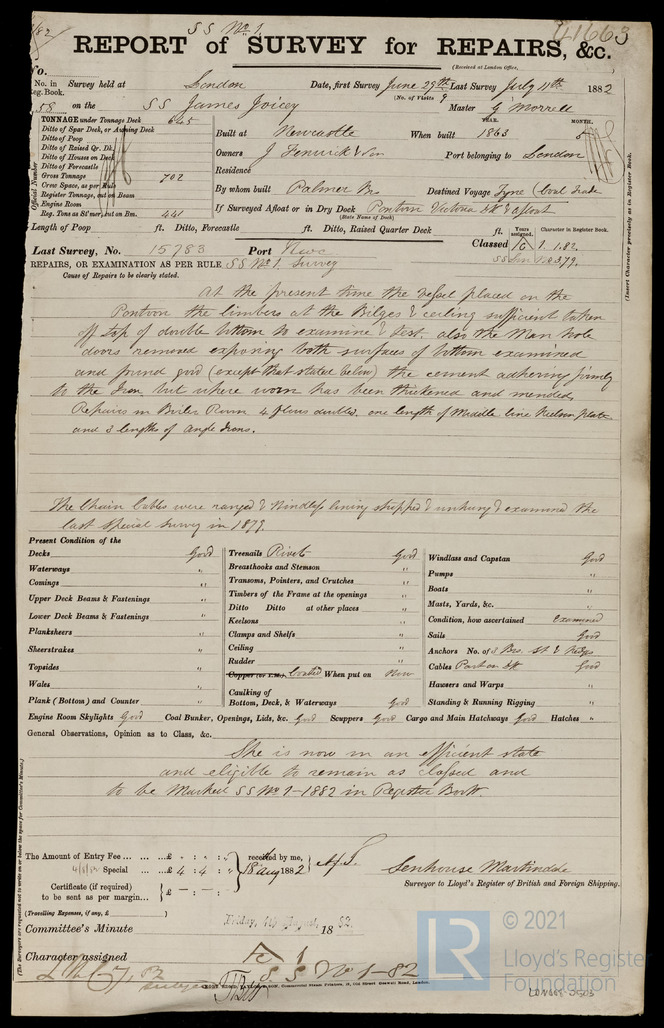 SS No 1.
41663
REPORT of SURVEY for REPAIRS, &c.
(Received at London Office,
No.
No. in Reg. Book. Survey held at London Date, first Survey June 29th Last Survey July 11th 1882
(No. of Visits 9
58 on the SS James Joicey Master G Morrell
TONNAGE under Tonnage Deck 645
Ditto of Spar Deck, or Awning Deck
Ditto of Poop
Ditto of Raised Qr. Dk.
Ditto of Houses on Deck
Ditto of Forecastle
Gross Tonnage 702
Crew Space, as per Rule
Register Tonnage, cut on Beam
Engine Room
Reg. Tons as St'mer, cut on Bm. 441
Official Number
YEAR. MONTH.
Built at Newcastle When built 1863 5
Owners J Fenwick & Son Port belonging to London
Residence
By whom built Palmer Bros Destined Voyage Tyne Coal trade
If Surveyed Afloat or in Dry Dock Pontoon Victoria Dk & afloat
(State Name of Dock)
Length of Poop ft. Ditto, Forecastle ft. Ditto, Raised Quarter Deck ft.
Years assigned. Character in Register Book.
Last Survey, No. 15783 Port Newc Classed 1. 1.82.
REPAIRS, OR EXAMINATION AS PER RULE SS No 1. Survey
Cause of Repairs to be clearly stated.
(Insert Character precisely as in Register Book.)
At the present time the Vessel placed on the
Pontoon the limbers at the Bilges & ceiling sufficient taken
off top of double bottom to examine & test. also the Man hole
doors removed exposing both surfaces of bottom examined
and found good (except that stated below) the cement adhering firmly
to the Iron but where worn has been thickened and mended,
Repairs in Boiler Room 4 floors doubled. one length of Middle line Keelson plate
and 3 lengths of Angle Irons.
The Chain Cables were ranged & Windlass lining stripped & unhung & examined the
last Special survey in 1879.
Present Condition of the
Decks Good
Waterways "
Comings "
Upper Deck Beams & Fastenings "
Lower Deck Beams & Fastenings "
Planksheers "
Sheerstrakes "
Topsides "
Wales "
Plank (Bottom) and Counter "
Treenails Rivets Good
Breasthooks and Stemson "
Transoms, Pointers, and Crutches "
Timbers of the Frame at the openings "
Ditto Ditto at other places "
Keelsons "
Clamps and Shelfs "
Ceiling "
Rudder "
Copper (or Y.M.) Coated When put on Now
Caulking of
Bottom, Deck, & Waterways Good
Windlass and Capstan Good
Pumps "
Boats "
Masts, Yards, &c. "
Condition, how ascertained examined
Sails Good
Anchors No. of 3 Brs. St & Kedges
Cables Part on Dk Good
Hawsers and Warps "
Standing & Running Rigging "
Engine Room Skylights Good Coal Bunker, Openings, Lids, &c. Good Scuppers Good Cargo and Main Hatchways Good Hatches "
General Observations, Opinion as to Class, &c.
She is now in an efficient state
and eligible to remain as classed and
to be Marked SS No 1-1882 in Register Book.
(The Surveyors are requested not to write on or below the space for Committee's Minute.)
The Amount of Entry Fee ... ... £ : :
Special ... £ 4 : 4 :
Certificate (if required)
to be sent as per margin... £ — : — :
(Travelling Expenses, if any, £ )
received by me,
18 Aug 1882
Senhouse Martindale
Surveyor to Lloyd's Register of British and Foreign Shipping.
Committee's Minute Friday, 4th August, 18 82.
Character assigned A 1
S.S No 1-82
© 2021
LR
Lloyd's Register
Foundation